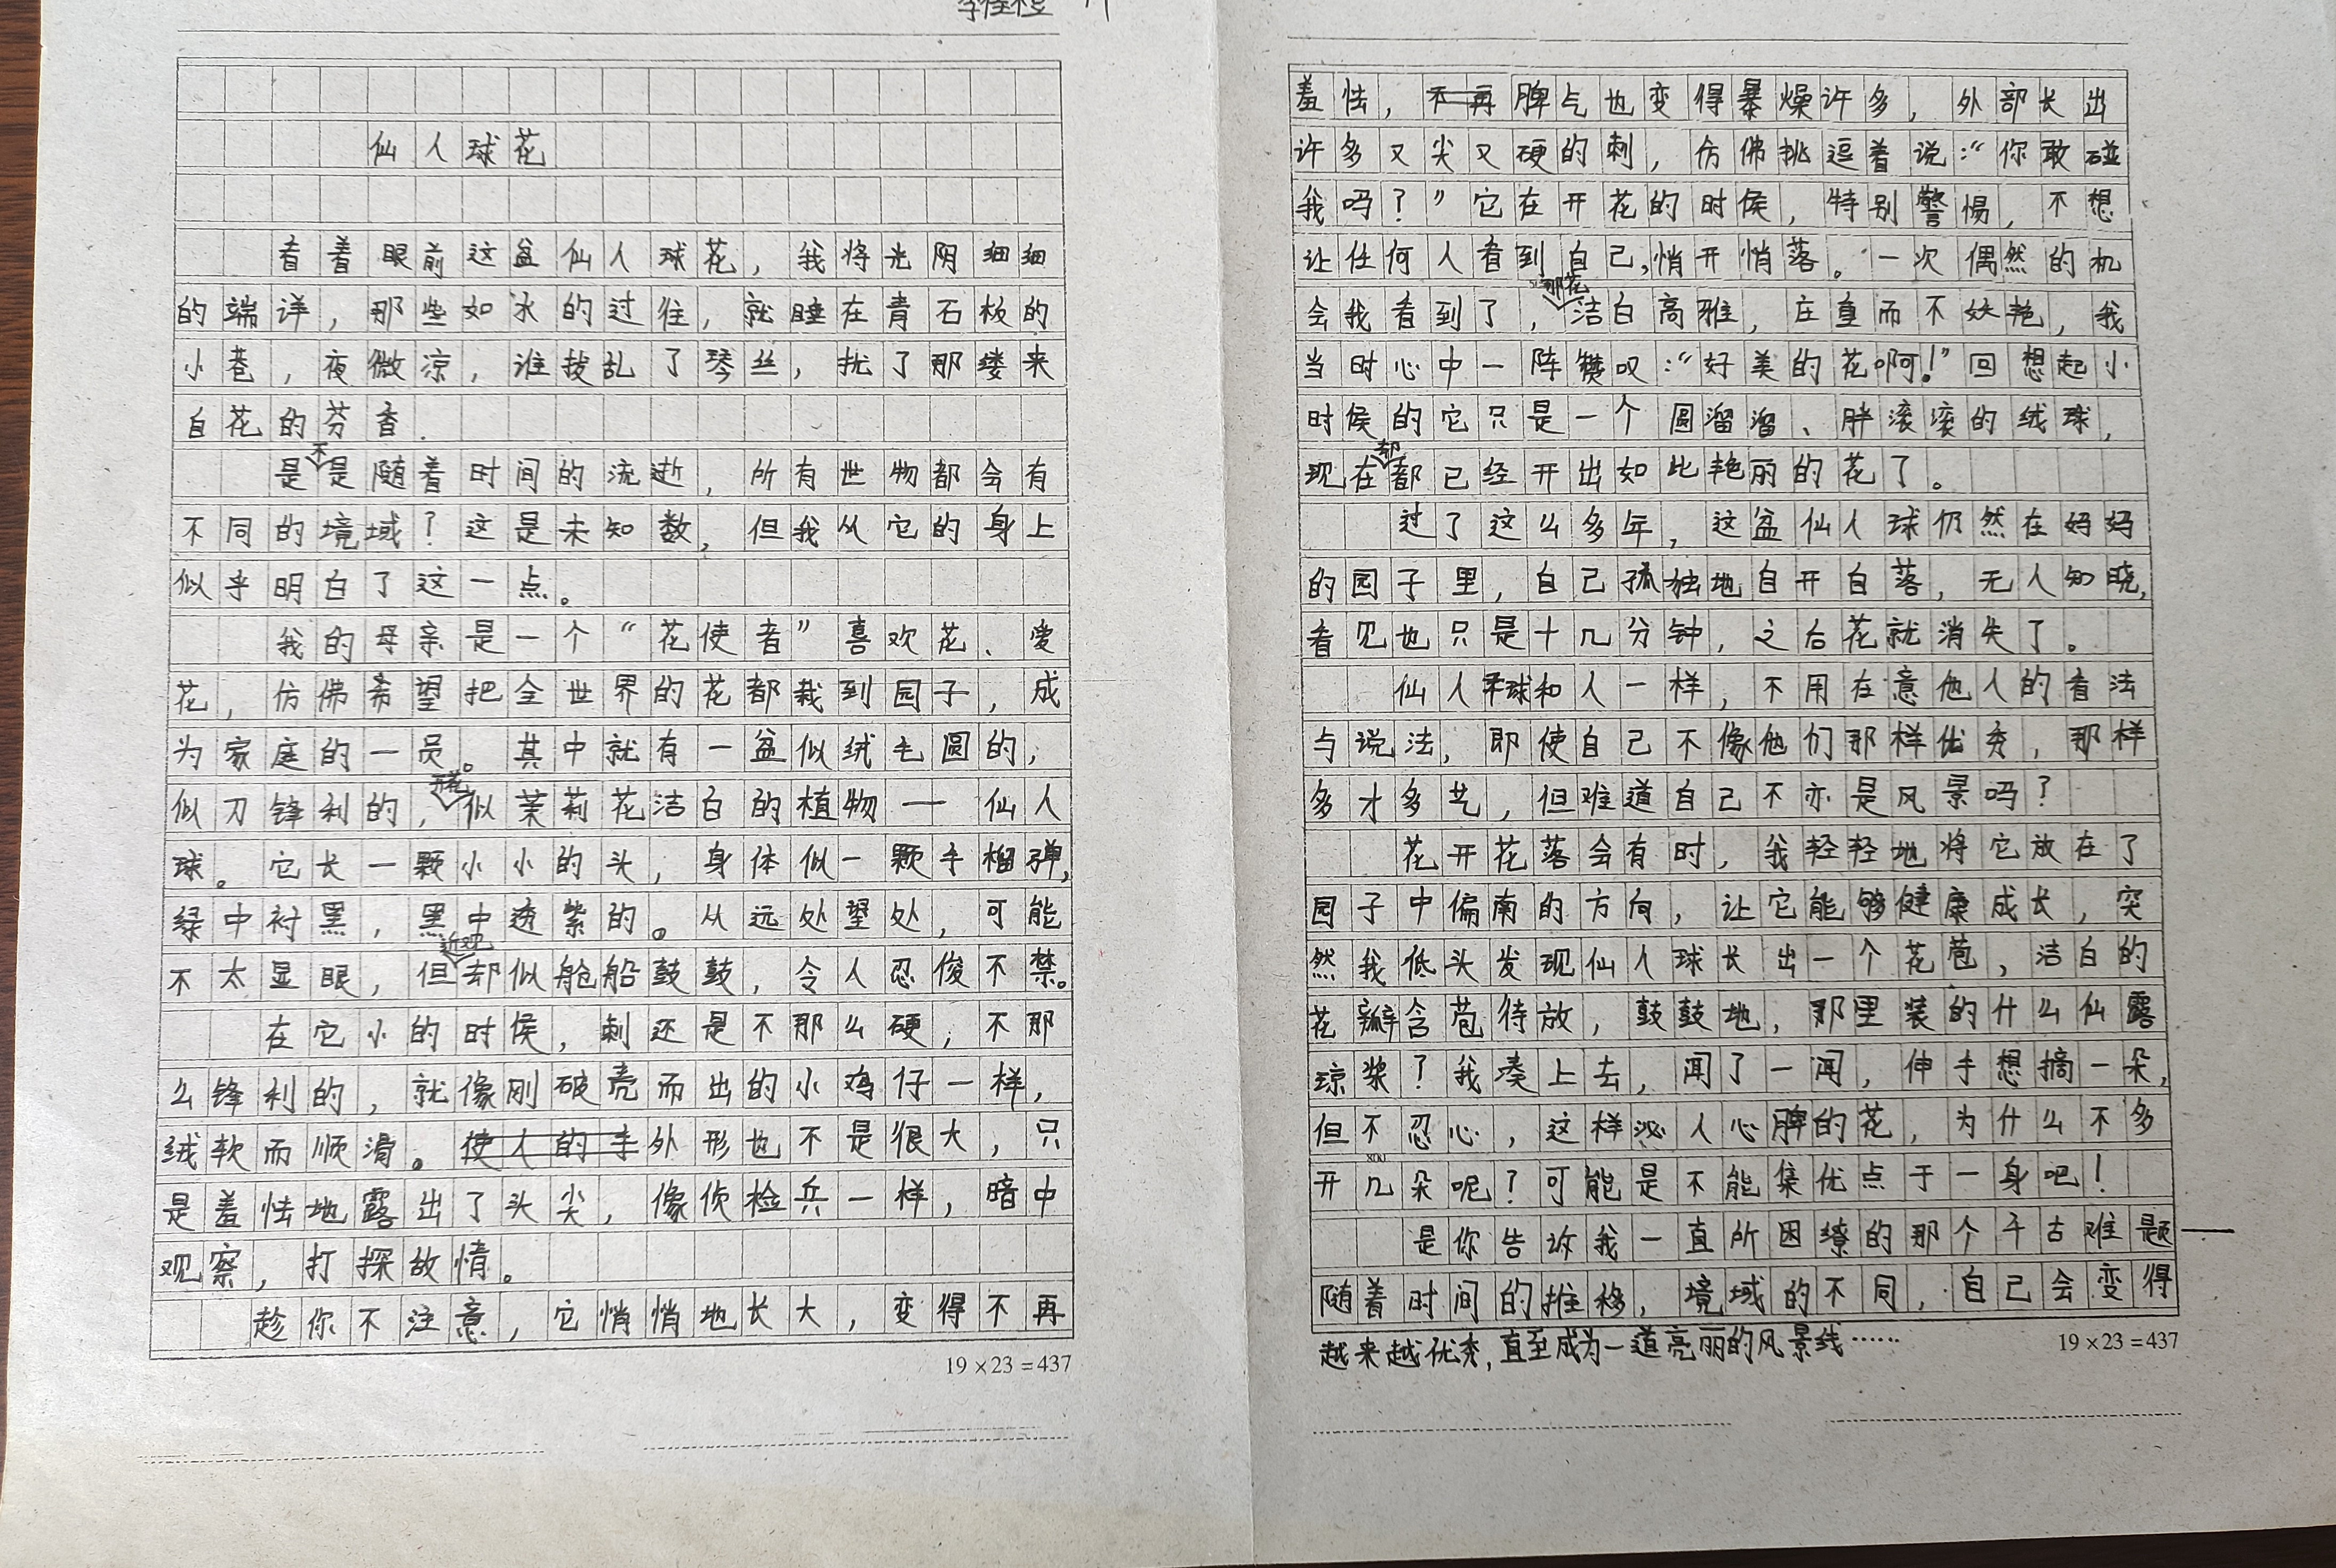 仙人球花
看着眼前这盆仙人球花，我将光阴细细
的端详，那些如水的过往，就睡在青石板的
小巷，夜微凉，谁拨乱了琴丝，扰了那缕来
自花的芬香.
是不是随着时间的流逝，所有世物都会有
不同的境域？这是未知数，但我从它的身上
似乎明白了这一点。
我的母亲是一个“花使者”喜欢花、爱
花，仿佛希望把全世界的花都栽到园子，成
为家庭的一员。其中就有一盆似绒毛圆的，
似刀锋利的，开花似茉莉花洁白的植物——仙人
球。它长一颗小小的头，身体似一颗手榴弹，
绿中衬黑，黑中透紫的。从远处望处，可能
不太显眼，但近观却似舱船鼓鼓，令人忍俊不禁。
在它小的时侯，刺还是不那么硬，不那
么锋利的，就像刚破壳而出的小鸡仔一样，
绒软而顺滑。使人的手外形也不是很大，只
是羞怯地露出了头尖，像侦检兵一样，暗中
观察，打探敌情。
趁你不注意，它悄悄地长大，变得不再
羞怯，不再脾气也变得暴燥许多，外部长出
许多又尖又硬的刺，仿佛挑逗着说：“你敢碰
我吗？”它在开花的时侯，特别警惕，不想
让任何人看到自己，悄开悄落。一次偶然的机
会我看到了，那花洁白高雅，庄重而不妖艳，我
当时心中一阵赞叹：“好美的花啊！”回想起小
时侯的它只是一个圆溜溜、胖滚滚的绒球，
现在却都已经开出如此艳丽的花了。
过了这么多年，这盆仙人球仍然在妈妈
的园子里，自己孤独地自开自落，无人知晓，
看见也只是十几分钟，之后花就消失了。
仙人球和人一样，不用在意他人的看法
与说法，即使自己不像他们那样优秀，那样
多才多艺，但难道自己不亦是风景吗？
花开花落会有时，我轻轻地将它放在了
园子中偏南的方向，让它能够健康成长，突
然我低头发现仙人球长出一个花苞，洁白的
花瓣含苞待放，鼓鼓地，那里装的什么仙露
琼浆？我凑上去，闻了一闻，伸手想摘一朵，
但不忍心，这样沁人心脾的花，为什么不多
800
开几朵呢？可能是不能集优点于一身吧！
是你告诉我一直所困缭的那个千古难题——
随着时间的推移，境域的不同，自己会变得
越来越优秀，直至成为一道亮丽的风景线……
19×23=437
19×23=437